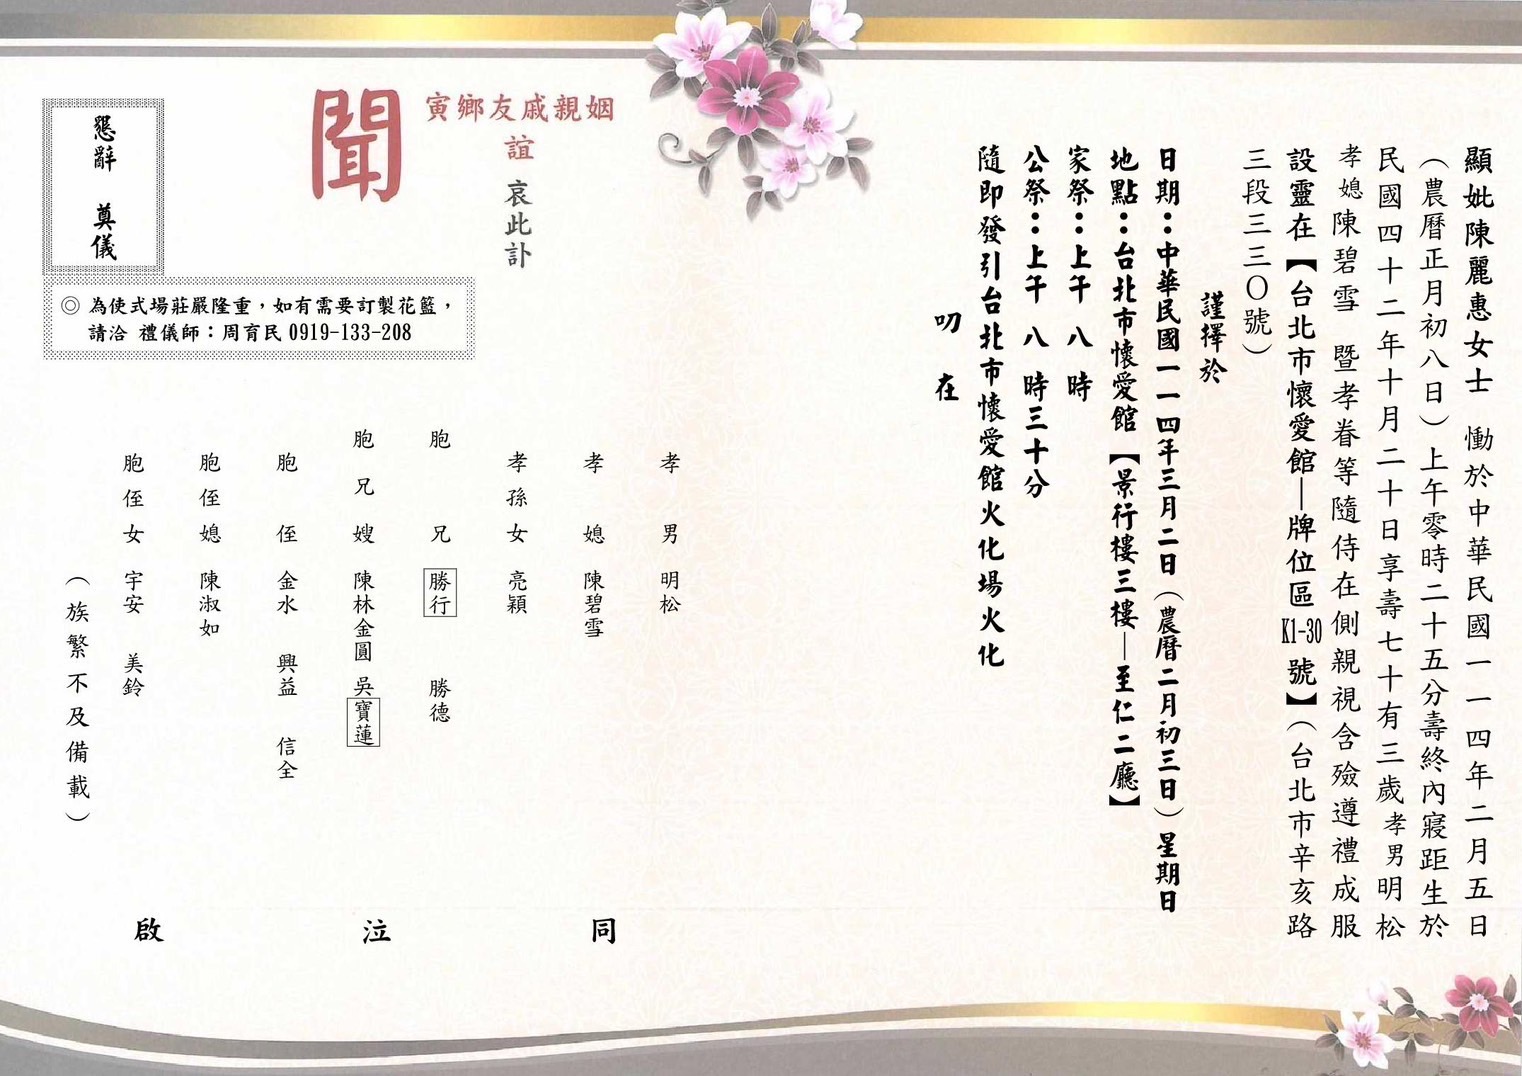 顯妣陳麗惠女士　慟於中華民國一一四年二月五日
（農曆正月初八日）上午零時二十五分壽終內寢距生於
民國四十二年十月二十日享壽七十有三歲孝男明松
孝媳陳碧雪　暨孝眷等隨侍在側親視含殮遵禮成服
設靈在【台北市懷愛館—牌位區K1-30號】（台北市辛亥路
三段三三０號）
謹擇於
日期：中華民國一一四年三月二日（農曆二月初三日）星期日
地點：台北市懷愛館【景行樓三樓—至仁二廳】
家祭：上午 八 時
公祭：上午 八 時三十分
隨即發引台北市懷愛館火化場火化
叨　在
姻親戚友鄉寅
誼　哀此訃
聞
懇辭　奠儀
◎ 為使式場莊嚴隆重，如有需要訂製花籃，
請洽 禮儀師：周育民 0919-133-208
孝　男　明松
孝　媳　陳碧雪
孝孫女　亮穎
胞　兄　勝行　勝德
胞兄嫂　陳林金圓　吳寶蓮
胞　侄　金水　興益　信全
胞侄媳　陳淑如
胞侄女　宇安　美鈴
（族繁不及備載）
同　泣　啟